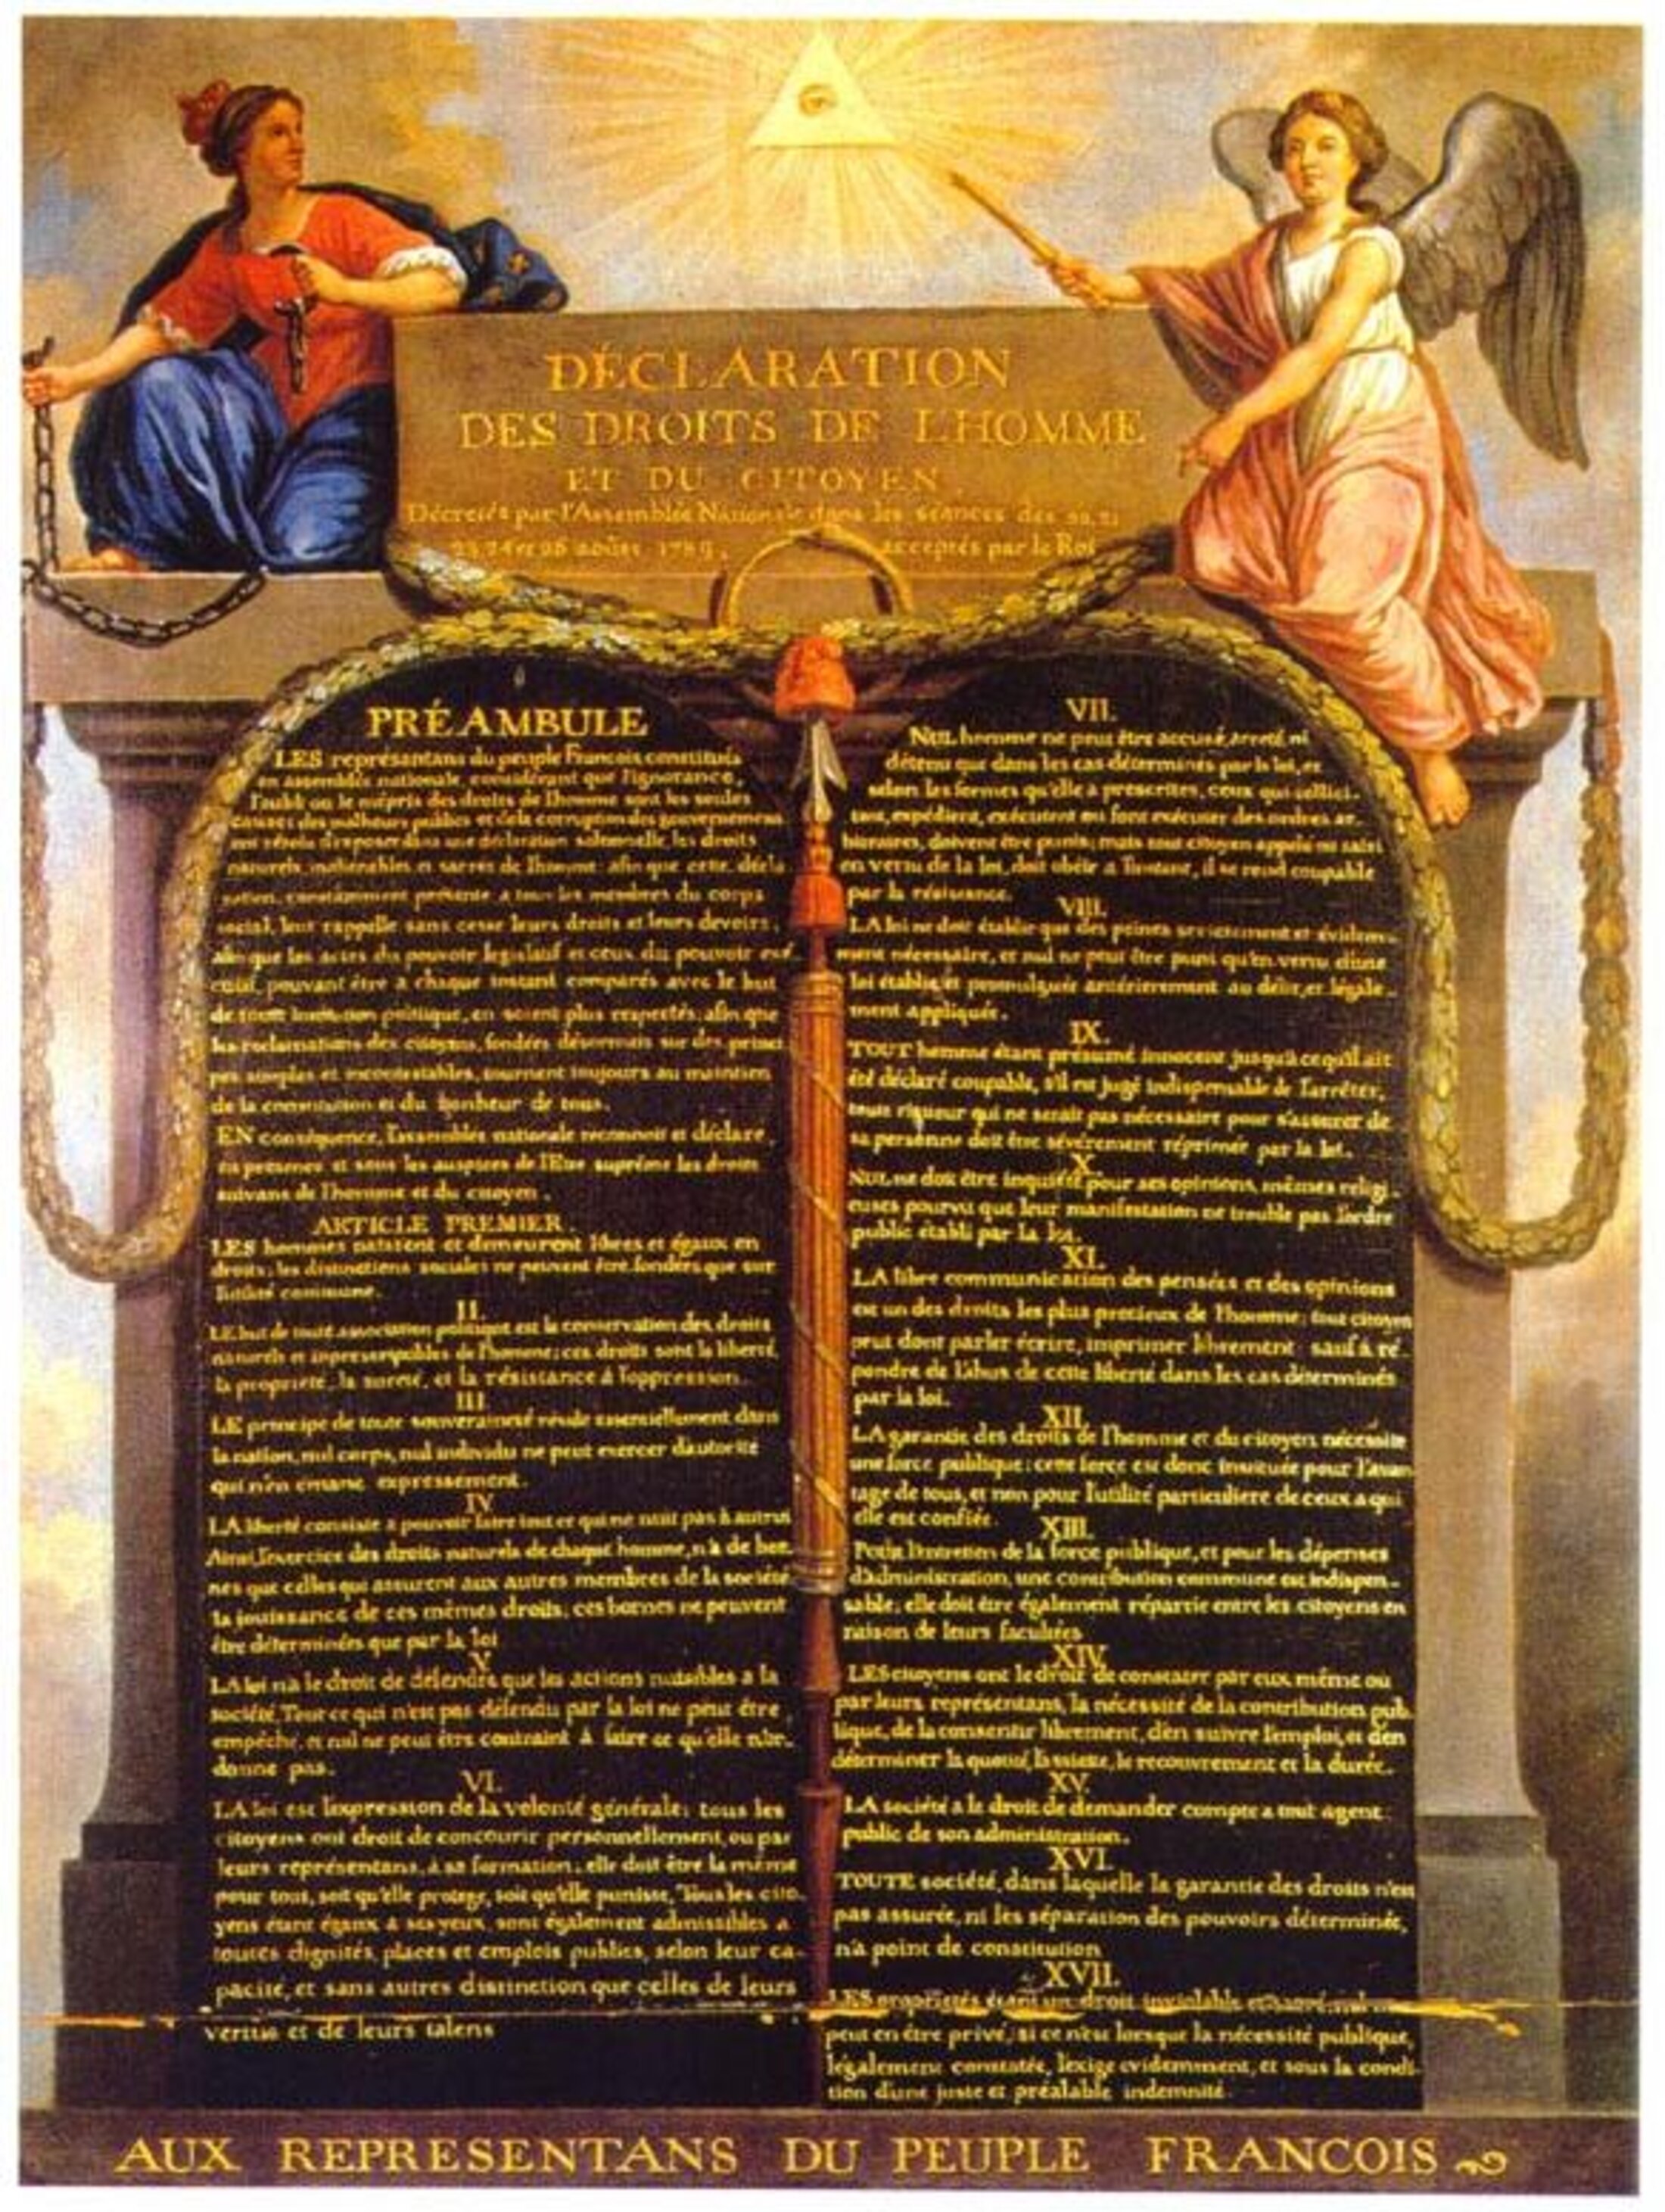 DÉCLARATION
DES DROITS DE L'HOMME
ET DU CITOYEN,
Décretés par l'Assemblée Nationale dans les séances des 20, 21
23, 24 et 26 aoûst 1789, acceptés par le Roi
PRÉAMBULE
LES représentans du peuple Francois constitués
en assemblée nationale, considérant que l'ignorance,
l'oubli ou le mépris des droits de l'homme sont les seules
causes des malheurs publics et de la corruption des gouvernemens
ont résolu d'exposer dans une déclaration solemnelle, les droits
naturels, inaliénables et sacrés de l'homme; afin que cette décla
ration, constamment présente a tous les membres du corps
social, leur rappelle sans cesse leurs droits et leurs devoirs,
afin que les actes du pouvoir legislatif et ceux du pouvoir exé
cutif, pouvant être a chaque instant comparés avec le but
de toute institution politique, en soient plus respectés; afin que
les reclamations des citoyens, fondées désormais sur des princi
pes simples et incontestables, tournent toujours au maintien
de la constitution et du bonheur de tous.
EN conséquence, l'assemblée nationale reconnoit et déclare,
en presence et sous les auspices de l'Etre suprême les droits
suivans de l'homme et du citoyen.
ARTICLE PREMIER.
LES hommes naissent et demeurent libres et égaux en
droits; les distinctions sociales ne peuvent être fondées que sur
l'utilité commune.
II.
LE but de toute association politique est la conservation des droits
naturels et inprescriptibles de l'homme; ces droits sont la liberté,
la propriété, la sureté, et la résistance à l'oppression.
III
LE principe de toute souveraineté réside essentiellement dans
la nation, nul corps, nul individu ne peut exercer d'autorité
qui n'en emane expressément.
IV
LA liberté consiste a pouvoir faire tout ce qui ne nuit pas à autrui
Ainsi, l'exercice des droits naturels de chaque homme, n'a de bor-
nes que celles qui assurent aux autres membres de la société
la jouissance de ces mêmes droits; ces bornes ne peuvent
être déterminées que par la loi
V
LA loi n'a le droit de défendre que les actions nuisibles a la
société. Tout ce qui n'est pas défendu par la loi ne peut être
empêché, et nul ne peut être contraint à faire ce qu'elle n'or-
donne pas.
VI.
LA loi est l'expression de la volonté générale; tous les
citoyens ont droit de concourir personnellement, ou par
leurs représentans, à sa formation; elle doit être la même
pour tous, soit qu'elle protege, soit qu'elle punisse, Tous les cito-
yens étant égaux à ses yeux, sont également admissibles a
toutes dignités, places et emplois publics, selon leur ca-
pacité, et sans autres distinction que celles de leurs
vertus et de leurs talens
VII.
NUL homme ne peut être accusé, arreté, ni
détenu que dans les cas déterminés par la loi, et
selon les formes qu'elle a prescrites, ceux qui sollici-
tent, expédient, exécutent ou font exécuter des ordres ar-
bitraires, doivent être punis; mais tout citoyen appelé ou saisi
en vertu de la loi, doit obéir a l'instant, il se rend coupable
par la résistance.
VIII.
LA loi ne doit établir que des peines strictement et évidem-
ment nécessaire, et nul ne peut être puni qu'en vertu d'une
loi établie et promulguée antérierement au délit, et légale-
ment appliquée.
IX.
TOUT homme étant présumé innocent jusqu'a ce qu'il ait
été déclaré coupable, s'il est jugé indispensable de l'arrêter,
toute rigueur qui ne serait pas nécessaire pour s'assurer de
sa personne doit être sévérement réprimée par la loi.
X.
NUL ne doit être inquiété pour ses opinions, mêmes religi-
euses pourvu que leur manifestation ne trouble pas l'ordre
public établi par la loi.
XI.
LA libre communication des pensées et des opinions
est un des droits les plus precieux de l'homme; tout citoyen
peut dont parler écrire, imprimer librement sauf à ré-
pondre de l'abus de cette liberté dans les cas déterminés
par la loi.
XII.
LA garantie des droits de l'homme et du citoyen nécessite
une force publique; cette force est donc instituée pour l'avan-
tage de tous, et non pour l'utilité particuliere de ceux a qui
elle est confiée.
XIII.
Pour l'entretien de la force publique, et pour les dépenses
d'administration, une contribution commune est indispen-
sable; elle doit être également répartie entre les citoyens en
raison de leurs facultées
XIV.
LES citoyens ont le droit de constater par eux même ou
par leurs représentans, la nécessité de la contribution pub-
lique, de la consentir librement, d'en suivre l'emploi, et d'en
déterminer la quotité, l'assiette, le recouvrement et la durée.
XV.
LA société a le droit de demander compte a tout agent
public de son administration.
XVI.
TOUTE société, dans laquelle la garantie des droits n'est
pas assurée, ni les séparation des pouvoirs déterminée,
n'a point de constitution
XVII.
LES propriétés étant un droit inviolable et sacré, nul ne
peut en être privé, si ce n'est lorsque la nécessité publique,
légalement constatée, l'exige evidemment, et sous la condi-
tion d'une juste et préalable indemnité.
AUX REPRESENTANS DU PEUPLE FRANCOIS